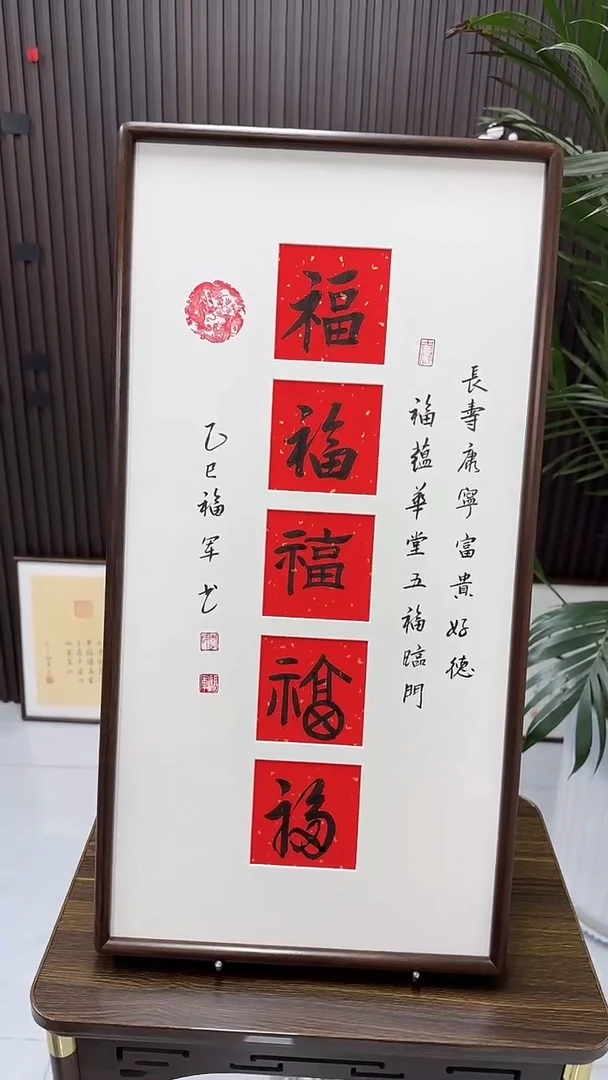 長壽康寧富貴好德
福蘊華堂五福臨門
福
福
福
福
福
乙巳福軍书